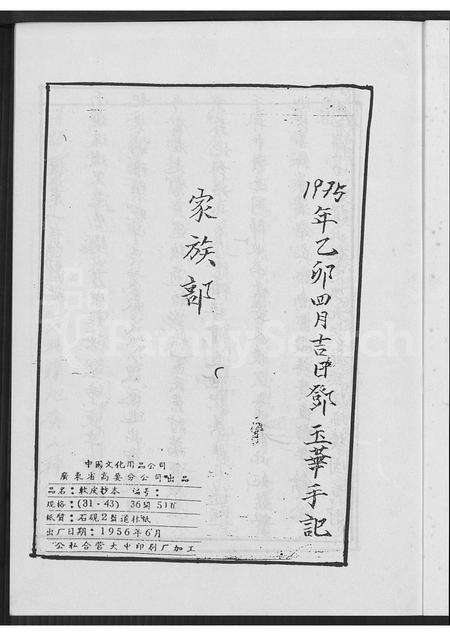 1975年乙卯四月吉日鄧玉華手記
家族部
中国文化用品公司
廣東省高要分公司出品
品名：軟皮抄本 編号：
規格：(31·43) 36開51頁
紙質：石硯2号道林紙
出厂日期：1956年6月
公私合营大中印刷厂加工
FamilySearch